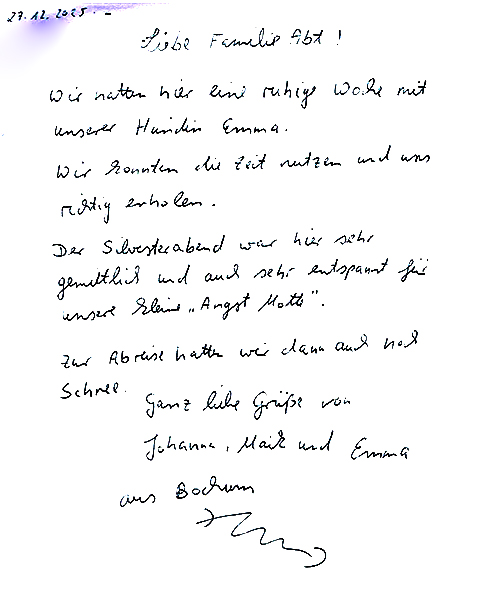 27.12.2025. –
Liebe Familie Abt!
Wir hatten hier eine ruhige Woche mit
unserer Hündin Emma.
Wir konnten die Zeit nutzen und uns
richtig erholen.
Der Silvesterabend war hier sehr
gemütlich und auch sehr entspannt für
unsere kleine „Angst Motte".
Zur Abreise hatten wir dann auch noch
Schnee.
Ganz liebe Grüße von
Johanna, Maik und Emma
aus Bochum